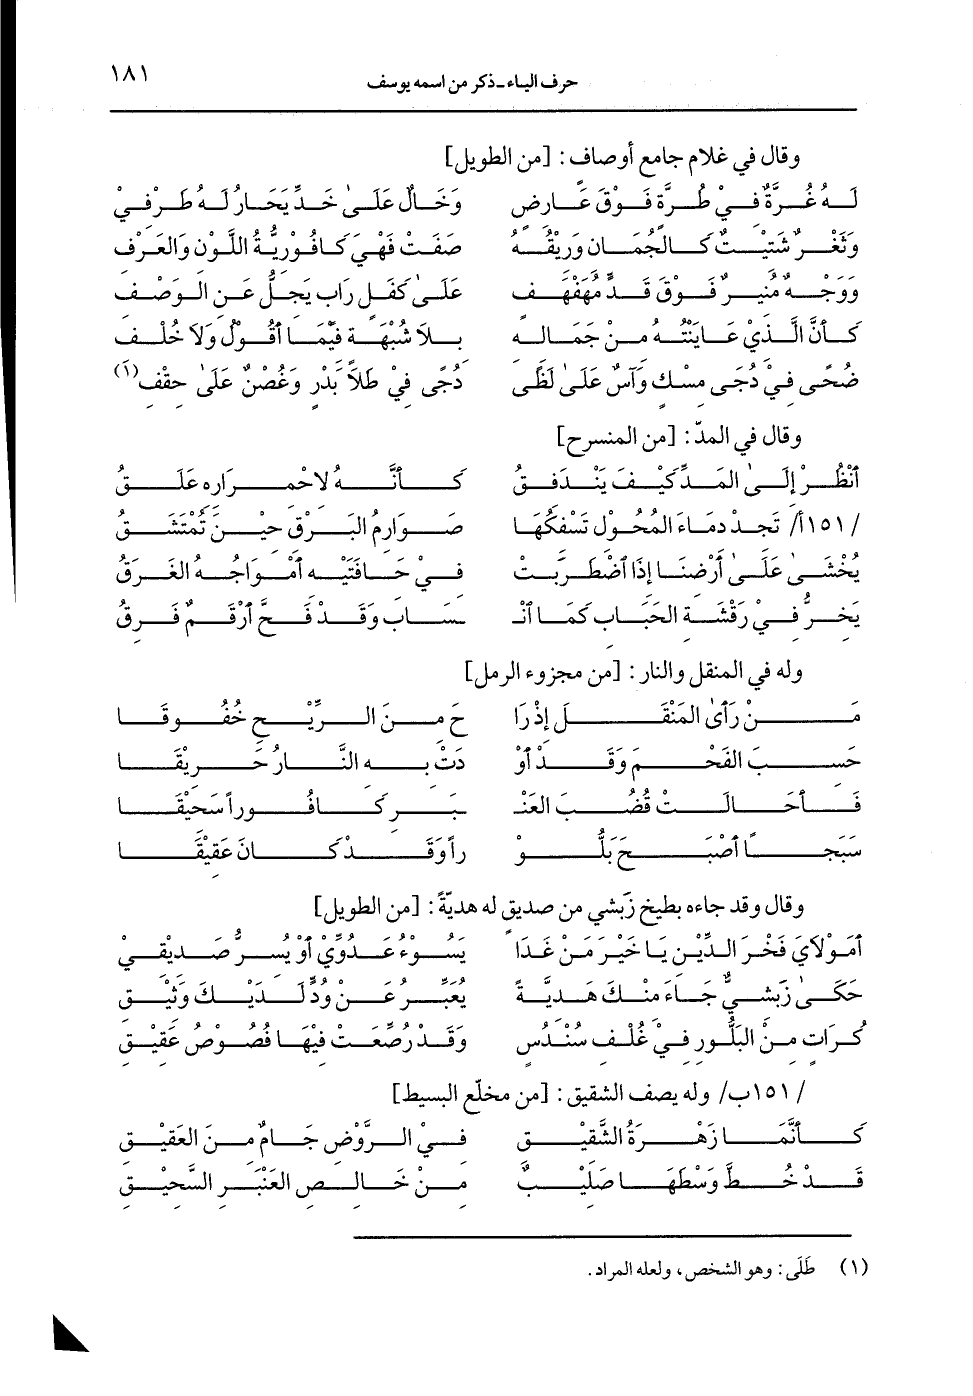 حرف الياء ـ ذكر من اسمه يوسف ١٨١
وقال في غلام جامع أوصاف : [من الطويل]
لَهُ غُرَّةٌ فِيْ طُرَّةٍ فَوْقَ عَارِضٍ وَخَالٌ عَلَىٰ خَدٍّ يَحَارُ لَهُ طَرْفِيْ
وَثَغْرٌ شَتِيْتٌ كَالجُمَانِ وَرِيْقُهُ صَفَتْ فَهْيَ كَافُوْرِيَّةُ اللَّوْنِ وَالعَرْفِ
وَوَجْهٌ مُنِيْرٌ فَوْقَ قَدٍّ مُهَفْهَفٍ عَلَىٰ كَفَلٍ رَابٍ يَجِلُّ عَنِ الوَصْفِ
كَأَنَّ الَّذِيْ عَايَنْتُهُ مِنْ جَمَالِهِ بِلاَ شُبْهَةٍ فِيْمَا أَقُوْلُ وَلاَ خُلْفِ
ضُحًى فِيْ دُجًى مِسْكٍ وَآسٌ عَلَىٰ لَظًى دُجًى فِيْ طَلاَ بَدْرٍ وَغُصْنٌ عَلَىٰ حِقْفِ(١)
وقال في المدّ : [من المنسرح]
أنْظُرْ إِلَىٰ المَدِّ كَيْفَ يَنْدَفِقُ كَأَنَّهُ لاحْمِرَارِهِ عَلَقُ
/١٥١أ/ تَجِدْ دِمَاءَ المُحُوْلِ تَسْفِكُهَا صَوَارِمُ البَرْقِ حِيْنَ تُمْتَشَقُ
يُخْشَىٰ عَلَىٰ أَرْضِنَا إِذَا اضْطَرَبَتْ فِيْ حَافَتَيْهِ أَمْوَاجُهُ الغَرَقُ
يَخِرُّ فِيْ رَقْشَةِ الحَبَابِ كَمَا انْـ ـسَابَ وَقَدْ فَحَّ أَرْقَمٌ فَرِقُ
وله في المنقل والنار : [من مجزوء الرمل]
مَنْ رَأَىٰ المَنْقَلَ إِذْ رَا حَ مِنَ الرِّيْحِ خُفُوْقَا
حَسِبَ الفَحْمَ وَقَدْ أَوْ دَتْ بِهِ النَّارُ حَرِيْقَا
فَأَحَالَتْ قُضُبَ العَنْـ ـبَرِ كَافُوراً سَحِيْقَا
سَبَجًا أَصْبَحَ بَلُّوْ راً وَقَدْ كَانَ عَقِيْقَا
وقال وقد جاءه بطيخ زَبْشي من صديق له هديّةً : [من الطويل]
أَمَوْلاَيَ فَخْرَ الدِّيْنِ يَا خَيْرَ مَنْ غَدَا يَسُوْءُ عَدُوِّيْ أَوْ يَسُرُّ صَدِيْقِيْ
حَكَىٰ زَبْشِيٌّ جَاءَ مِنْكَ هَدِيَّةً يُعَبِّرُ عَنْ وُدٍّ لَدَيْكَ وَثِيْقِ
كُرَاتٍ مِنْ البَلُّورِ فِيْ غُلْفِ سُنْدُسٍ وَقَدْ رُصِّعَتْ فِيْهَا فُصُوْصُ عَقِيْقِ
/١٥١ب/ وله يصف الشقيق : [من مخلّع البسيط]
كَأَنَّمَا زَهْرَةُ الشَّقِيْقِ فِيْ الرَّوْضِ جَامٌ مِنَ العَقِيْقِ
قَدْ خُطَّ وَسْطَهَا صَلِيْبٌ مِنْ خَالِصِ العَنْبَرِ السَّحِيْقِ
(١) طَلَى : وهو الشخص، ولعله المراد.